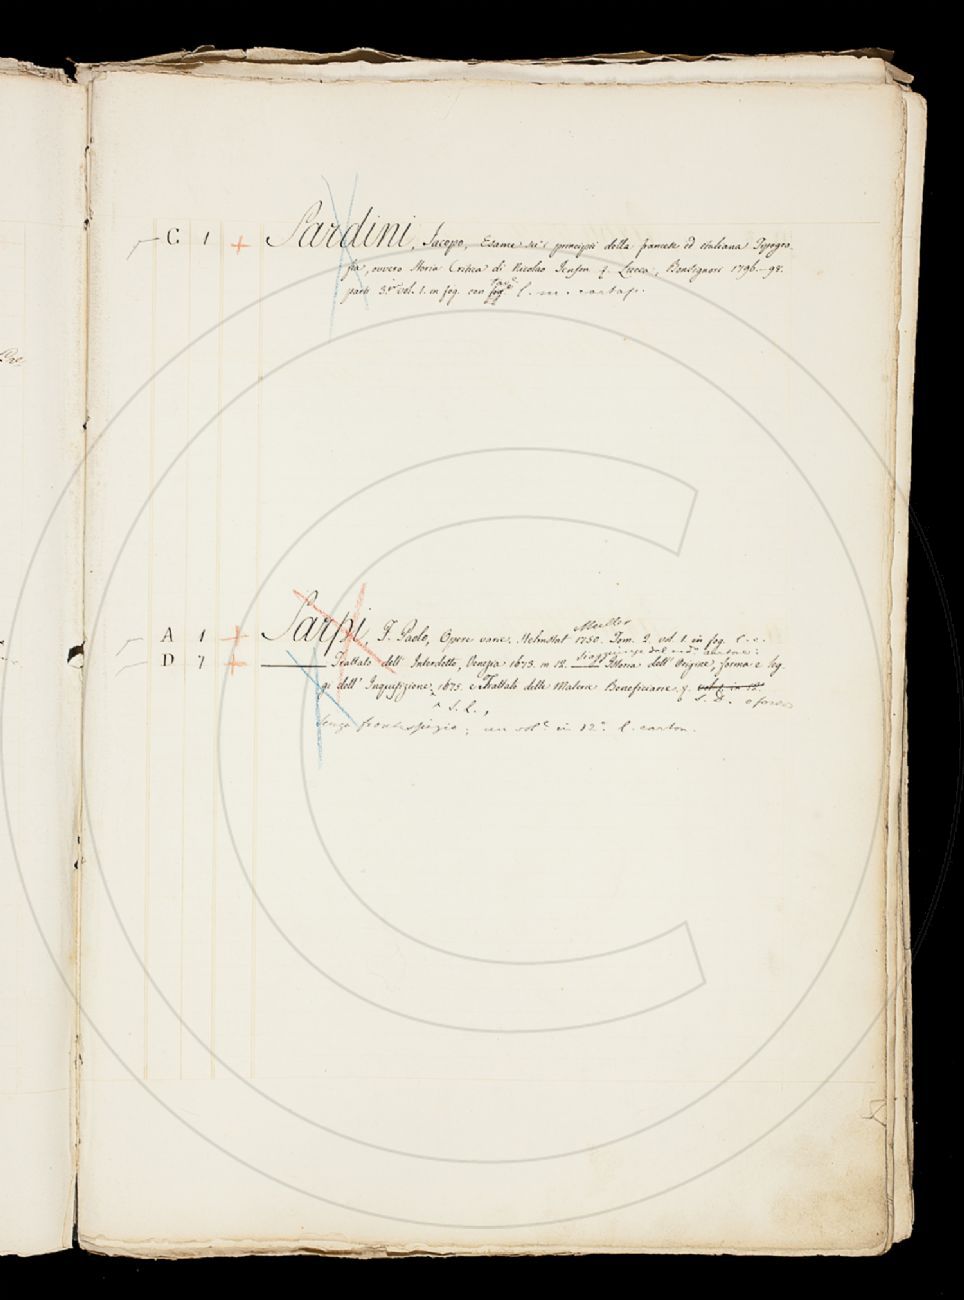 C 1 + Sardini, Jacopo, Esame su i principii della francese ed italiana Tipogra
fia, ovvero Storia Critica di Nicolao Jenson q. Lucca, Bonsignori 1796.-98.
parti 3. vol. 1. in fog. con l. m. cartap.
A 1 + Sarpi, F. Paolo, Opere varie. Helmstat Muller 1750. Tom. 2. vol. 1. in fog. l. c.
D 7 + Trattato dell' Interdetto, Venezia 1673. in 12. Storia dell' Origine, forma e leg
gi dell' Inquisizione, S. l., 1675. e Trattato delle Materie Beneficiarie q. vol. 1. in 12.
S. D. e forse
senza frontespizio; un vol. in 12.° l. carton.